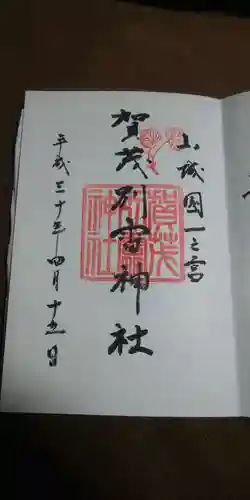 山城國一之宮
賀茂別雷神社
賀茂別雷神社
平成三十年四月十五日